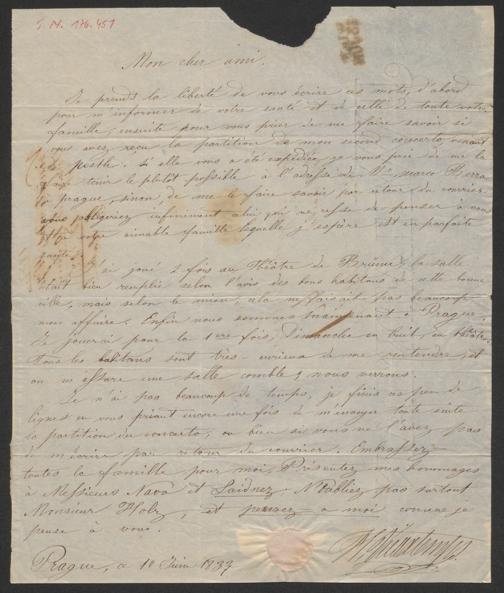 I. N. 176.451
Mon cher ami.
Je prends la liberté de vous écrire ces mots, d'abord
pour m'informer de votre santé et de celle de toute votre
famille, ensuite pour vous prier de me faire savoir si
vous avez reçu la partition de mon second concerto
poste. Si elle vous a été expediée, je vous prie de me la
faire tenir le plutot possible à l'adresse de Mr. Marco
à prague, sinon, de me le faire savoir par retour du courrier.
vous obligeriez infiniment celui qui ne cesse de penser à vous
et à votre aimable famille laquelle j'espère est en parfaite
santé.
J'ai joué 2 fois au Théâtre de Brünn, la salle
était bien remplie selon l'avis des bons habitans de cette bonne
ville, mais selon le mien, cela ne faisait pas beaucoup
mon affaire. Enfin nous sommes maintenant à Prague.
Je jouerai pour la 1ere fois, Dimanche en huit, au théâtre.
Tous les habitans sont très-curieux de me reentendre, et
on m'assure une salle comble; nous verrons.
Je n'ai pas beaucoup de temps, je finis ce peu de
lignes en vous priant encore une fois de m'envoyer toute suite
la partition du concerto, ou bien si vous ne l'avez pas
de m'écrire par retour du courrier. Embrassez
toutes la famille pour moi, Présentez mes hommages
à Messieurs Nava et Laidnez. N'oubliez pas surtout
Monsieur Holz, et pensez à moi comme je
pense à vous.
Prague, à 10 Juin 1837